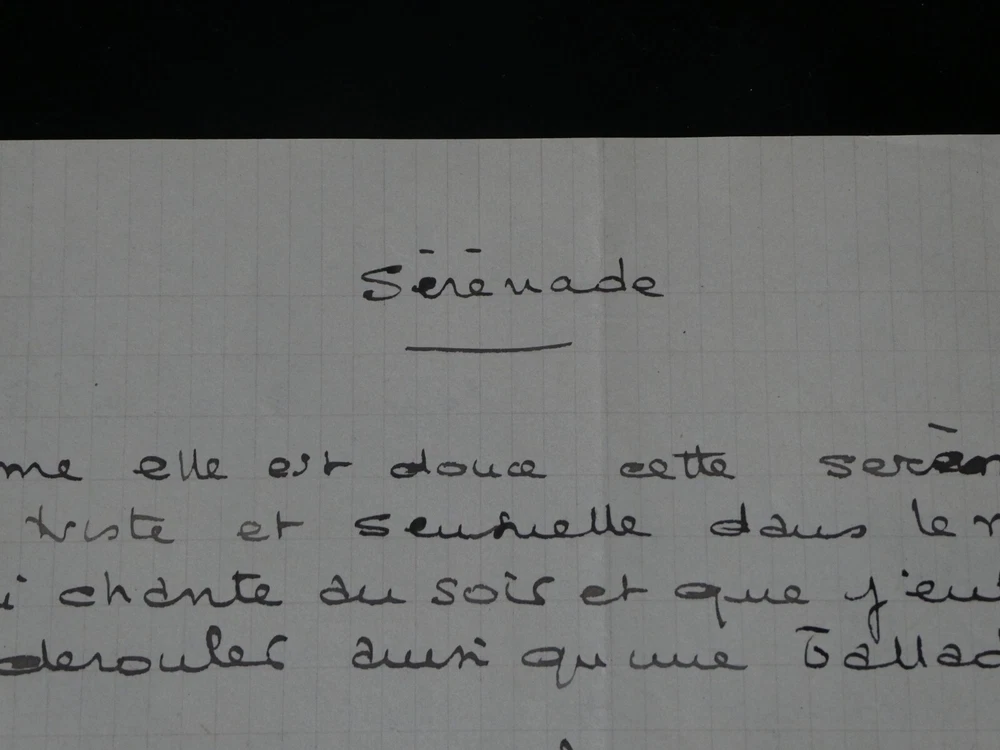 Sérénade
me elle est douce cette séré
triste et sensuelle dans le
i chante au soir et que j'en
derouler ainsi qu'une Ballad